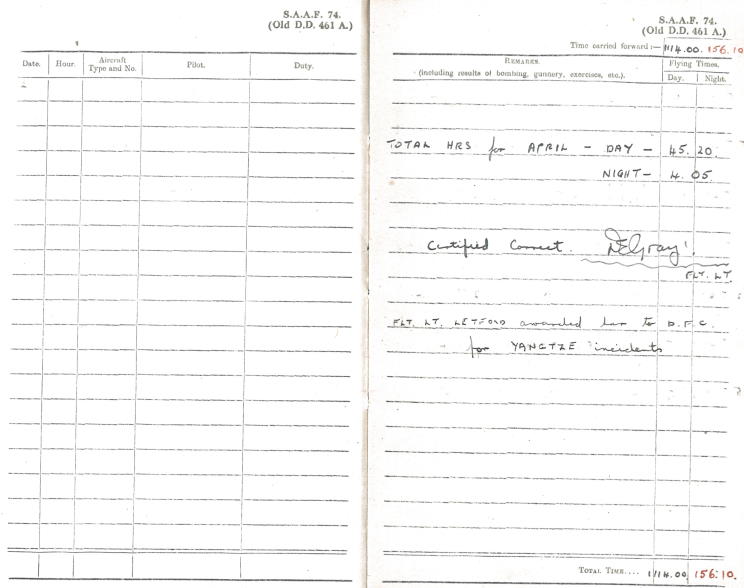 S.A.A.F. 74.
(Old D.D. 461 A.)
Date.
Hour.
Aircraft
Type and No.
Pilot.
Duty.
S.A.A.F. 74.
(Old D.D. 461 A.)
Time carried forward:— 1114.00. 156.10
REMARKS.
(including results of bombing, gunnery, exercises, etc.).
Flying Times.
Day.
Night.
TOTAL HRS for APRIL - DAY - 45. 20.
NIGHT - 4. 05
Certified Correct. Gray
FLT. LT.
FLT. LT. LETFORD awarded bar to D.F.C.
for YANGTZE incidents
TOTAL TIME.... 1114.00, 156:10.